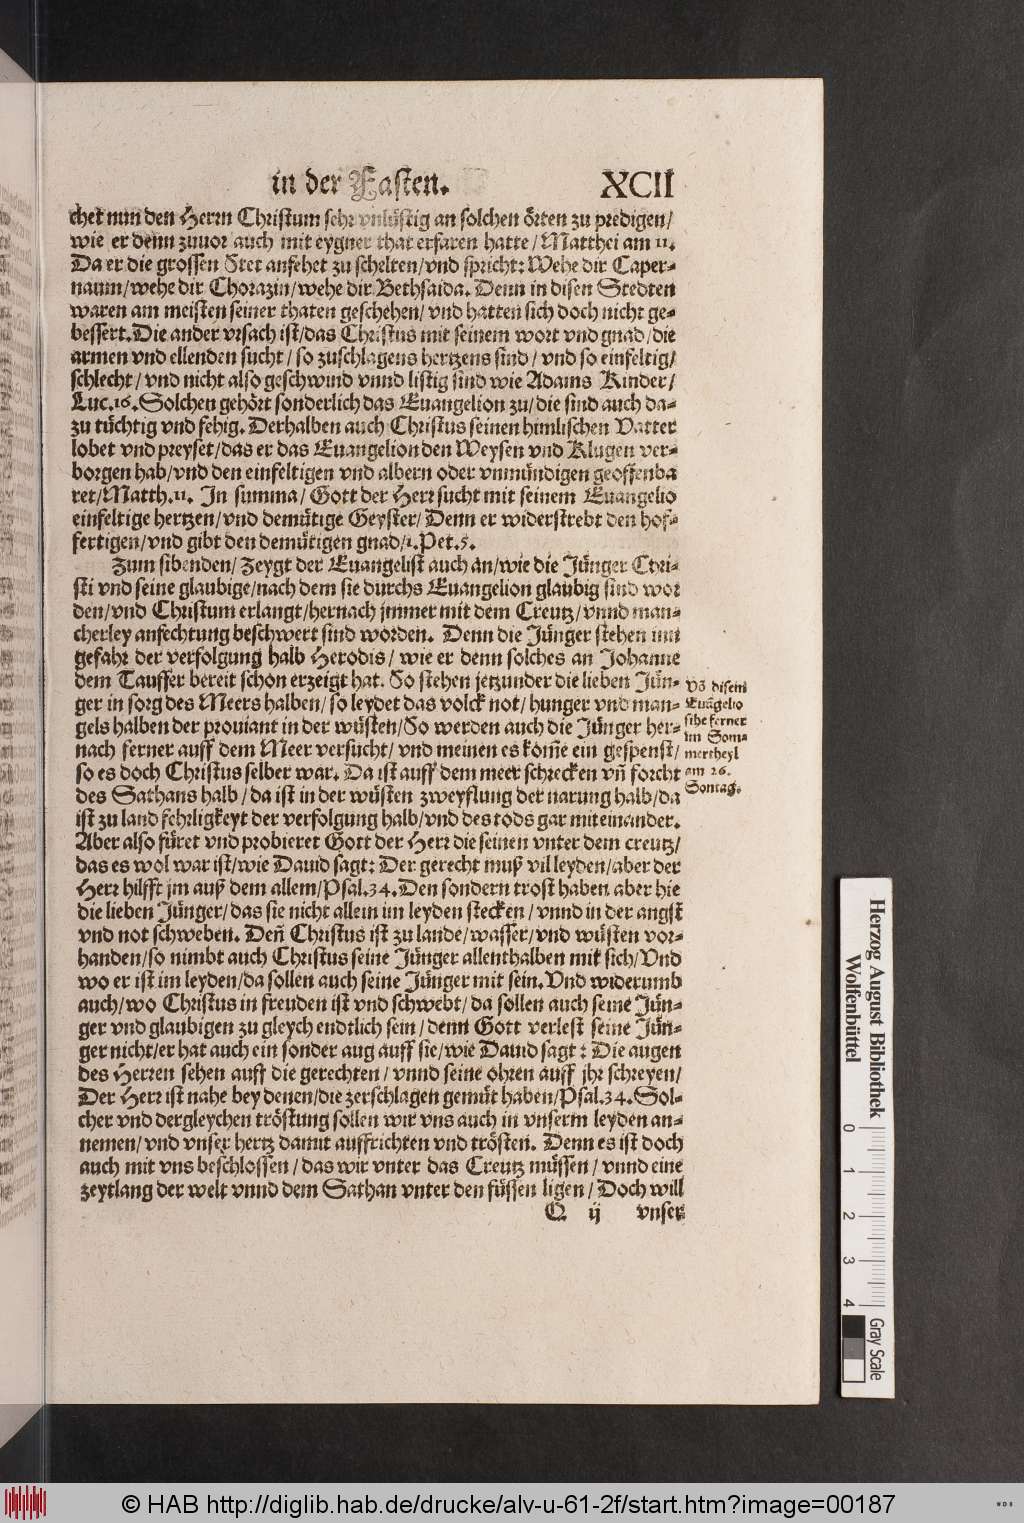 in der Fasten. XCII
chet nun den Herrn Christum sehr vnlüstig an solchen örten zu predigen/
wie er denn zuuor auch mit eygner that erfaren hatte/Matthei am 11.
Da er die grossen Stet anfehet zu schelten/vnd spricht: Wehe dir Caper-
naum/wehe dir Chorazin/wehe dir Bethsaida. Denn in disen Stedten
waren am meisten seiner thaten geschehen/vnd hatten sich doch nicht ge-
bessert. Die ander vrsach ist/das Christus mit seinem wort vnd gnad/die
armen vnd ellenden sucht/so zuschlagens hertzens sind/vnd so einfeltig/
schlecht/vnd nicht also geschwind vnnd listig sind wie Adams Kinder/
Luc.16. Solchen gehört sonderlich das Euangelion zu/die sind auch da-
zu tüchtig vnd fehig. Derhalben auch Christus seinen himlischen Vatter
lobet vnd preyset/das er das Euangelion den Weysen vnd Klugen ver-
borgen hab/vnd den einfeltigen vnd albern oder vnmündigen geoffenba
ret/Matth.11. In summa/Gott der Herr sucht mit seinem Euangelio
einfeltige hertzen/vnd demütige Geyster/Denn er widerstrebt den hof-
fertigen/vnd gibt den demütigen gnad/1.Pet.5.
Zum sibenden/Zeygt der Euangelist auch an/wie die Jünger Chri-
sti vnd seine glaubige/nach dem sie durchs Euangelion glaubig sind wor
den/vnd Christum erlangt/hernach jmmer mit dem Creutz/vnnd man-
cherley anfechtung beschwert sind worden. Denn die Jünger stehen inn
gefahr der verfolgung halb Herodis/wie er denn solches an Johanne
dem Tauffer bereit schon erzeigt hat. So stehen jetzunder die lieben Jün-
ger in sorg des Meers halben/so leydet das volck not/hunger vnd man-
gels halben der prouiant in der wüsten/So werden auch die Jünger her-
nach ferner auff dem Meer versucht/vnd meinen es kom̄e ein gespenst/
so es doch Christus selber war. Da ist auff dem meer schrecken vn̄ forcht
des Sathans halb/da ist in der wüsten zweyflung der narung halb/da
ist zu land fehrligkeyt der verfolgung halb/vnd des tods gar miteinander.
Aber also füret vnd probieret Gott der Herr die seinen vnter dem creutz/
das es wol war ist/wie Dauid sagt: Der gerecht muß vil leyden/aber der
Herr hilfft jm auß dem allem/Psal.34. Den sondern trost haben aber hie
die lieben Jünger/das sie nicht allein im leyden stecken/vnnd in der angst
vnd not schweben. Den̄ Christus ist zu lande/wasser/vnd wüsten vor-
handen/so nimbt auch Christus seine Jünger allenthalben mit sich/Vnd
wo er ist im leyden/da sollen auch seine Jünger mit sein. Vnd widerumb
auch/wo Christus in freuden ist vnd schwebt/da sollen auch seine Jün-
ger vnd glaubigen zu gleych endtlich sein/denn Gott verlest seine Jün-
ger nicht/er hat auch ein sonder aug auff sie/wie Dauid sagt: Die augen
des Herren sehen auff die gerechten/vnnd seine ohren auff jhr schreyen/
Der Herr ist nahe bey denen/die zerschlagen gemüt haben/Psal.34. Sol-
cher vnd dergleychen tröstung sollen wir vns auch in vnserm leyden an-
nemen/vnd vnser hertz damit auffrichten vnd trösten. Denn es ist doch
auch mit vns beschlossen/das wir vnter das Creutz müssen/vnnd eine
zeytlang der welt vnnd dem Sathan vnter den füssen ligen/Doch will
Q ij vnser
Vō disem
Euāgelio
sihe ferner
im Som-
mertheyl
am 26.
Sontag.
Herzog August Bibliothek
Wolfenbüttel
0 1 2 3 4
Gray Scale
© HAB http://diglib.hab.de/drucke/alv-u-61-2f/start.htm?image=00187